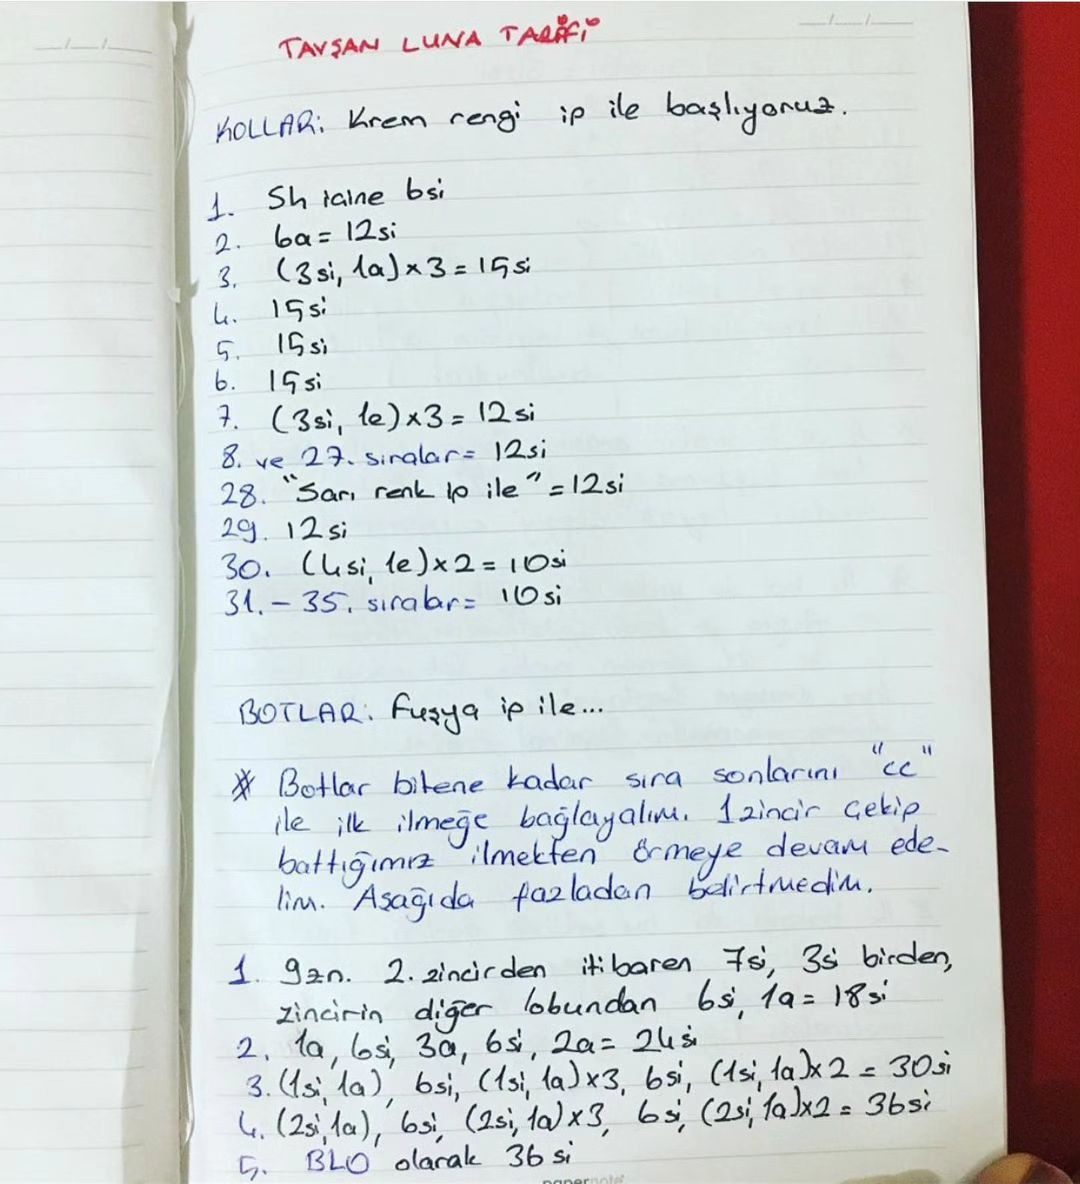 __/__/____
__/__/____
TAVŞAN LUNA TARİFİ
KOLLAR: Krem rengi ip ile başlıyoruz.
1. Sh içine 6si
2. 6a = 12si
3. (3si, 1a)×3 = 15si
4. 15si
5. 15si
6. 15si
7. (3si, 1e)×3 = 12si
8. ve 27. sıralar = 12si
28. "Sarı renk ip ile" = 12si
29. 12si
30. (4si, 1e)×2 = 10si
31. - 35. sıralar = 10si
BOTLAR: Fuşya ip ile...
* Botlar bitene kadar sıra sonlarını "cc"
ile ilk ilmeğe bağlayalım. 1 zincir çekip
battığımız ilmekten örmeye devam ede-
lim. Aşağıda fazladan belirtmedim.
1. 9zn. 2. zincirden itibaren 7si, 3si birden,
zincirin diğer lobundan 6si, 1a = 18si
2. 1a, 6si, 3a, 6si, 2a = 24si
3. (1si, 1a), 6si, (1si, 1a)×3, 6si, (1si, 1a)×2 = 30si
4. (2si, 1a), 6si, (2si, 1a)×3, 6si, (2si, 1a)×2 = 36si
5. BLO olarak 36si
papernote